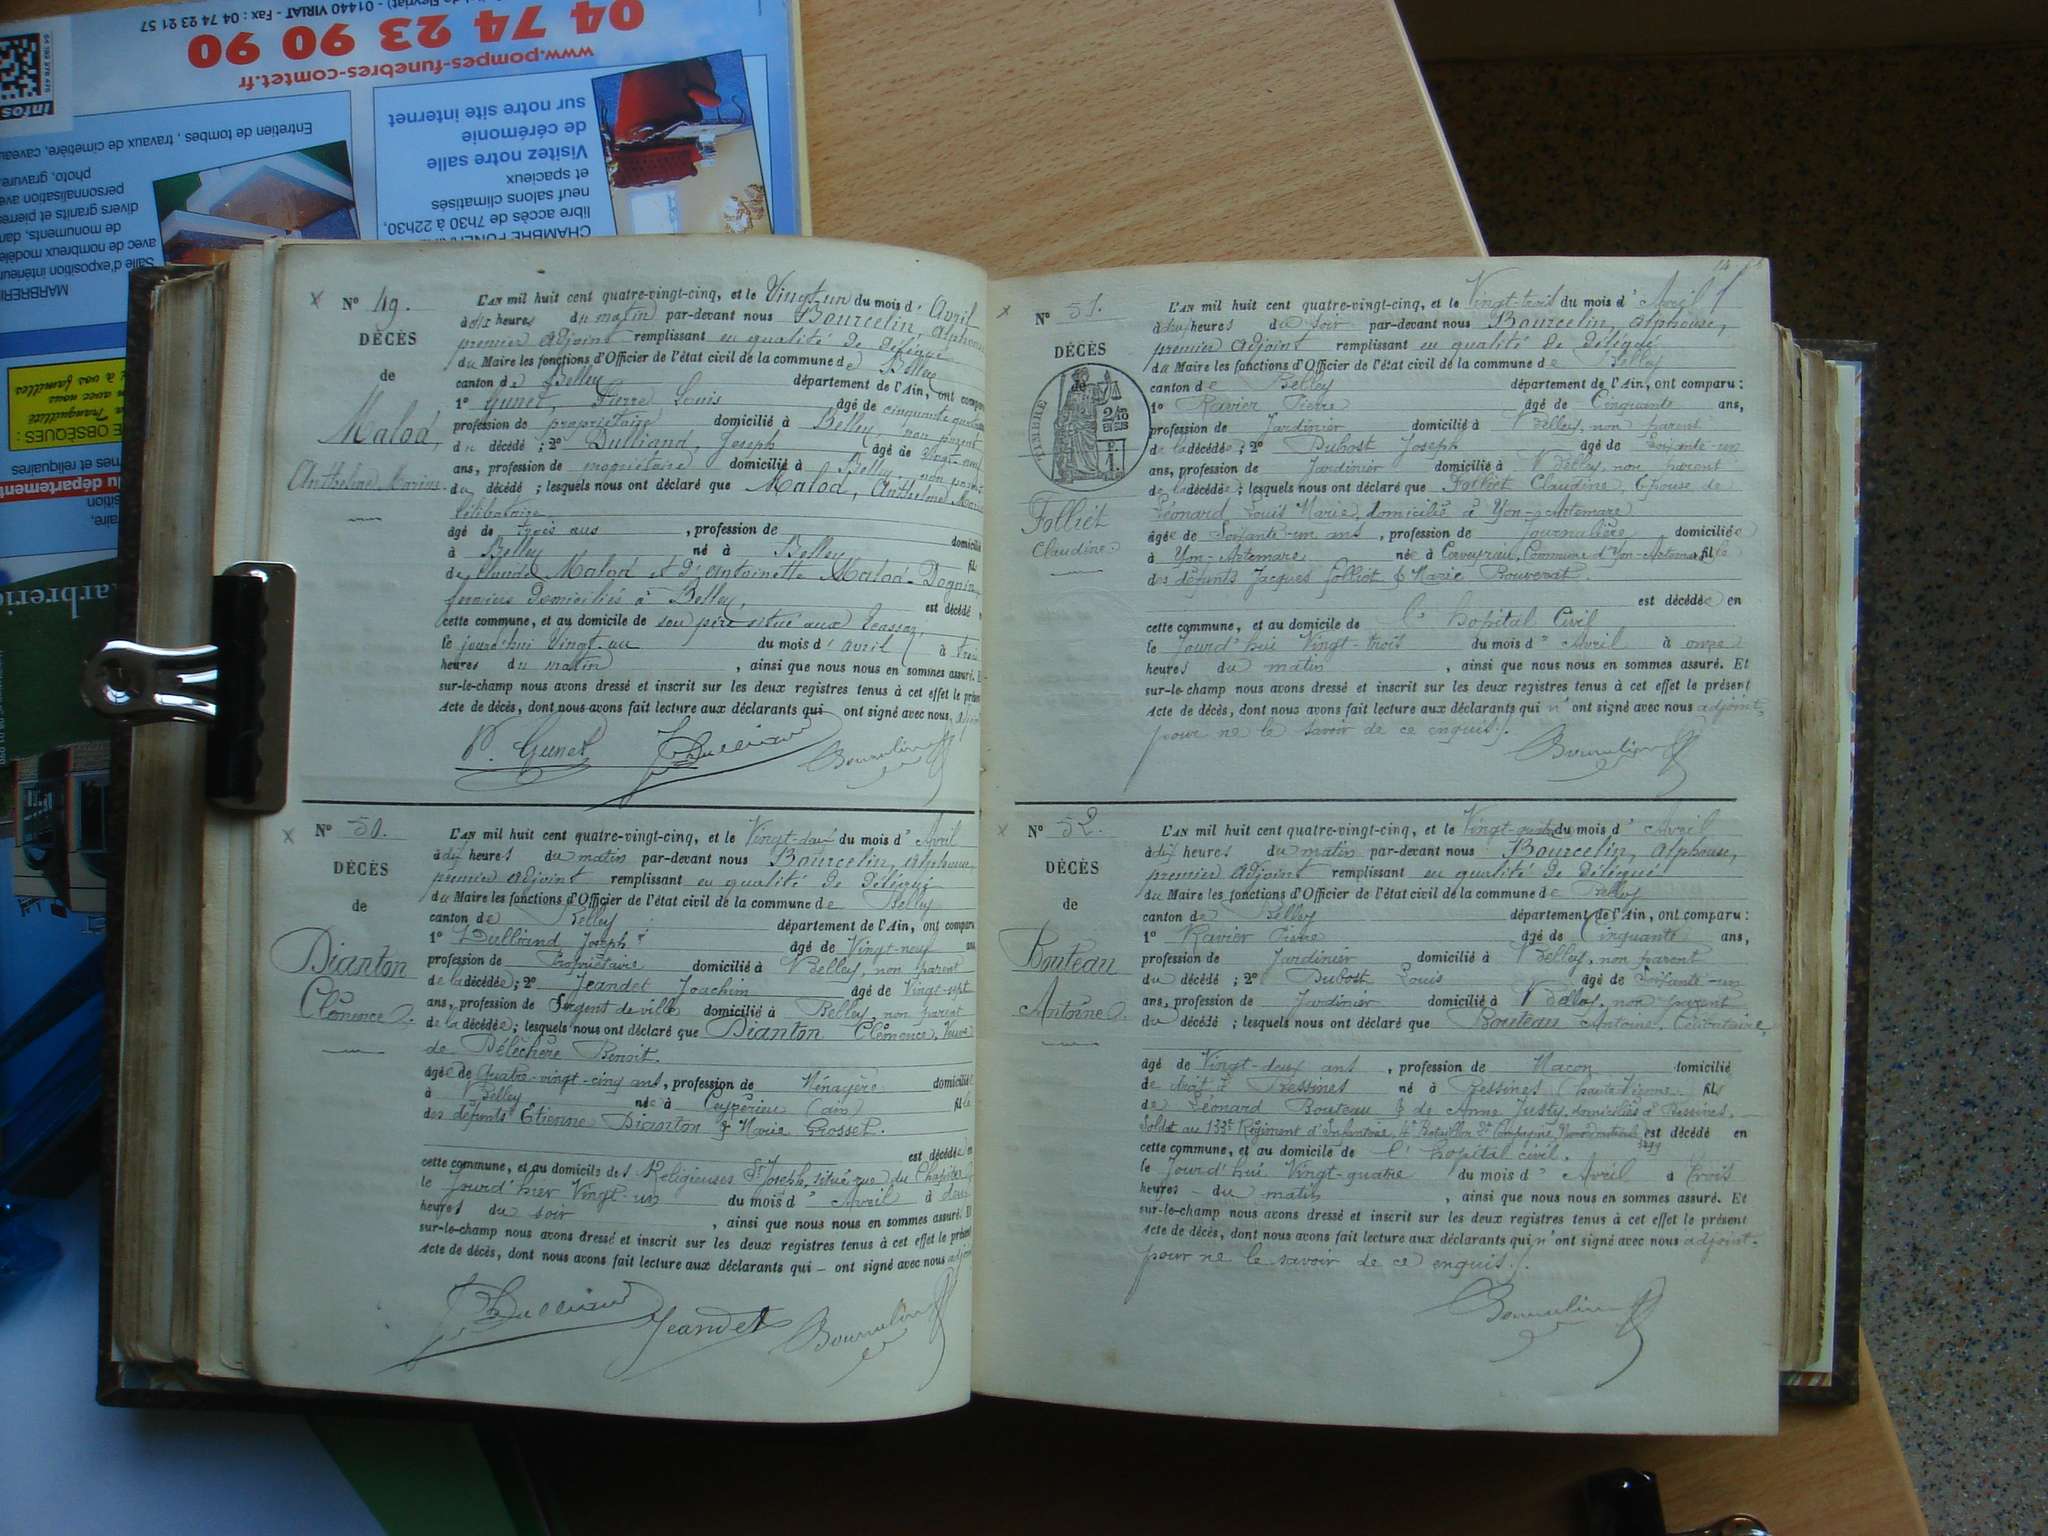 04 74 23 90 90
www.pompes-funebres-comtet.fr
01440 VIRIAT - Fax : 04 74 23 21 57
infos
Entretien de tombes, travaux de cimetière,
photo, gravure,
divers granits et
de monuments,
avec de nombreux
Salle d'exposition
Visitez notre salle
de cérémonie
sur notre site internet
CHAMBRE
libre accès de 7h30 à 22h30,
neuf salons climatisés
et spacieux
OBSÈQUES :
N° 49.
DÉCÈS
de
Malod,
Anthelme Marius
L'AN mil huit cent quatre-vingt-cinq, et le Vingt un du mois d' Avril
à dix heures du matin par-devant nous Bourcelin, Alphonse
premier adjoint remplissant en qualité de délégué
du Maire les fonctions d'Officier de l'état civil de la commune de Belley
canton de Belley département de l'Ain, ont
1° Gunet, Pierre Louis âgé de cinquante
profession de propriétaire domicilié à Belley non parent
du décédé ; 2° Dulliand, Joseph âgé de vingt-neuf
ans, profession de propriétaire domicilié à Belley non parent
du décédé ; lesquels nous ont déclaré que Malod, Anthelme
célibataire,
âgé de trois ans , profession de
à Belley né à Belley
de Claude Malod et d'Antoinette Malod-Dognin,
fermiers domiciliés à Belley, est décédé
cette commune, et au domicile de son père situé aux
le jourd'hui vingt-un du mois d' avril à trois
heures du matin , ainsi que nous nous en sommes assuré.
sur-le-champ nous avons dressé et inscrit sur les deux registres tenus à cet effet le
acte de décès, dont nous avons fait lecture aux déclarants qui ont signé avec nous,
P. Gunet J Dulliand Bourcelin
N° 50.
DÉCÈS
de
Dianton
Clémence.
L'AN mil huit cent quatre-vingt-cinq, et le Vingt-deux du mois d' Avril
à dix heures du matin par-devant nous Bourcelin, Alphonse,
premier adjoint remplissant en qualité de délégué
du Maire les fonctions d'Officier de l'état civil de la commune de Belley
canton de Belley département de l'Ain, ont
1° Dulliand Joseph âgé de Vingt-neuf
profession de Propriétaire domicilié à Belley, non parent
de la décédée ; 2° Jeandet Joachim âgé de Vingt-sept
ans, profession de Sergent de ville domicilié à Belley, non parent
de la décédée ; lesquels nous ont déclaré que Dianton Clémence, Veuve
de Béléchère Benoit.
âgée de Quatre-vingt-cinq ans, profession de Ménagère
à Belley née à Ceyzérieu (ain) fille
des défunts Etienne Dianton & Marie Grosset.
est décédée en
cette commune, et au domicile des Religieuses St Joseph, situé rue du Chapitre
le jourd'hier Vingt-un du mois d' Avril à deux
heures du soir , ainsi que nous nous en sommes assuré. Et
sur-le-champ nous avons dressé et inscrit sur les deux registres tenus à cet effet le présent
acte de décès, dont nous avons fait lecture aux déclarants qui - ont signé avec nous
J Dulliand Jeandet Bourcelin
N° 51.
DÉCÈS
de
TIMBRE
Folliet
Claudine.
L'AN mil huit cent quatre-vingt-cinq, et le Vingt-trois du mois d' Avril
à deux heures du soir par-devant nous Bourcelin, Alphonse,
premier adjoint remplissant en qualité de délégué
du Maire les fonctions d'Officier de l'état civil de la commune de Belley
canton de Belley département de l'Ain, ont comparu :
1° Ravier Pierre âgé de Cinquante ans,
profession de Jardinier domicilié à Belley, non parent
de la décédée ; 2° Dubost Joseph âgé de Soixante-un
ans, profession de Jardinier domicilié à Belley, non parent
de la décédée ; lesquels nous ont déclaré que Folliet Claudine, Epouse de
Léonard Louis Marie, domicilié à Yon-Artemare
âgée de Soixante-un ans , profession de Journalière domiciliée
à Yon-Artemare née à Cerveyrieu, Commune d'Yon-Artemare fille
des défunts Jacques Folliet & Marie Rouverat.
est décédée en
cette commune, et au domicile de l'hopital Civil
le jourd'hui Vingt-trois du mois d' Avril à onze
heures du matin , ainsi que nous nous en sommes assuré. Et
sur-le-champ nous avons dressé et inscrit sur les deux registres tenus à cet effet le présent
acte de décès, dont nous avons fait lecture aux déclarants qui n'ont signé avec nous adjoint,
pour ne le savoir de ce enquis.
Bourcelin
N° 52.
DÉCÈS
de
Bouteau
Antoine.
L'AN mil huit cent quatre-vingt-cinq, et le Vingt-quatre du mois d' Avril
à dix heures du matin par-devant nous Bourcelin, Alphonse,
premier adjoint remplissant en qualité de délégué
du Maire les fonctions d'Officier de l'état civil de la commune de Belley
canton de Belley département de l'Ain, ont comparu :
1° Ravier Pierre âgé de Cinquante ans,
profession de Jardinier domicilié à Belley, non parent
du décédé ; 2° Dubost Louis âgé de Soixante-un
ans, profession de Jardinier domicilié à Belley, non parent
du décédé ; lesquels nous ont déclaré que Bouteau Antoine, Célibataire,
âgé de Vingt-deux ans , profession de Maçon domicilié
de droit à Bessines né à Bessines (haute Vienne) fils
de Léonard Bouteau & de Anne Justy, domiciliés à Bessines,
Soldat au 133e Régiment d'Infanterie, 4e Bataillon 2e Compagnie, Numéro matricule est décédé en
cette commune, et au domicile de l'hopital civil.
le jourd'hui Vingt-quatre du mois d' Avril à trois
heures du matin , ainsi que nous nous en sommes assuré. Et
sur-le-champ nous avons dressé et inscrit sur les deux registres tenus à cet effet le présent
acte de décès, dont nous avons fait lecture aux déclarants qui n'ont signé avec nous adjoint,
pour ne le savoir de ce enquis.
Bourcelin